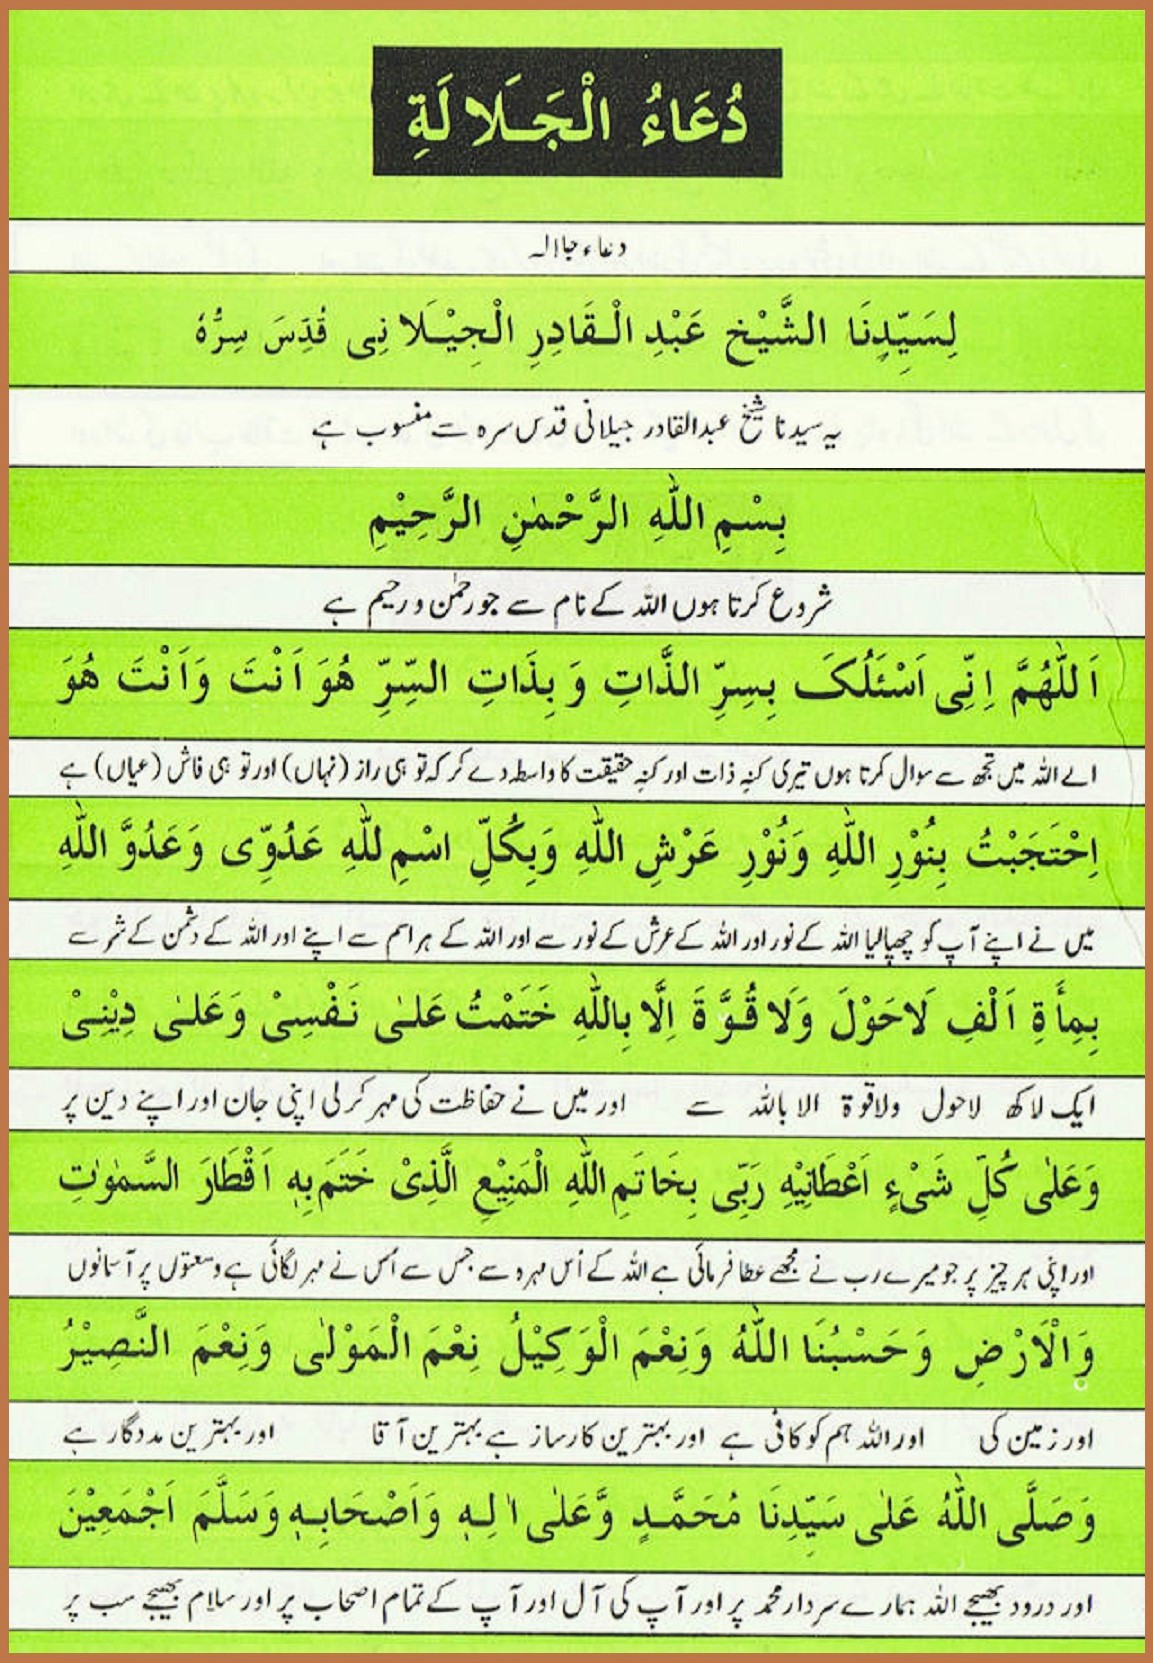 دُعَاءُ الْجَلَالَةِ
دعاء جلالہ
لِسَيِّدِنَا الشَّيْخِ عَبْدِ الْقَادِرِ الْجِيْلَانِى قُدِّسَ سِرُّهٗ
یہ سیدنا شیخ عبدالقادر جیلانی قدس سرہ سے منسوب ہے
بِسْمِ اللّٰهِ الرَّحْمٰنِ الرَّحِيْمِ
شروع کرتا ہوں اللہ کے نام سے جو رحمٰن و رحیم ہے
اَللّٰهُمَّ اِنِّى اَسْئَلُكَ بِسِرِّ الذَّاتِ وَ بِذَاتِ السِّرِّ هُوَ اَنْتَ وَاَنْتَ هُوَ
اے اللہ میں تجھ سے سوال کرتا ہوں تیری کنہِ ذات اور کنہِ حقیقت کا واسطہ دے کر کہ تو ہی راز (نہاں) اور تو ہی فاش (عیاں) ہے
اِحْتَجَبْتُ بِنُوْرِ اللّٰهِ وَنُوْرِ عَرْشِ اللّٰهِ وَبِكُلِّ اسْمٍ لِلّٰهِ عَدُوِّى وَعَدُوَّ اللّٰهِ
میں نے اپنے آپ کو چھپا لیا اللہ کے نور اور اللہ کے عرش کے نور سے اور اللہ کے ہر اسم سے اپنے اور اللہ کے دشمن کے شر سے
بِمِأَةِ اَلْفِ لَاحَوْلَ وَلَا قُوَّةَ اِلَّا بِاللّٰهِ خَتَمْتُ عَلٰى نَفْسِىْ وَعَلٰى دِيْنِىْ
ایک لاکھ لاحول ولاقوۃ الا باللہ سے اور میں نے حفاظت کی مہر کر لی اپنی جان اور اپنے دین پر
وَعَلٰى كُلِّ شَىْءٍ اَعْطَانِيْهِ رَبِّى بِخَاتَمِ اللّٰهِ الْمَنِيْعِ الَّذِىْ خَتَمَ بِهٖ اَقْطَارَ السَّمٰوٰتِ
اور اپنی ہر چیز پر جو میرے رب نے مجھے عطا فرمائی ہے اللہ کے اُس مہرہ سے جس سے اُس نے مہر لگائی ہے وسعتوں پر آسمانوں
وَالْاَرْضِ وَحَسْبُنَا اللّٰهُ وَنِعْمَ الْوَكِيْلُ نِعْمَ الْمَوْلٰى وَنِعْمَ النَّصِيْرُ
اور زمین کی اور اللہ ہم کو کافی ہے اور بہترین کارساز ہے بہترین آقا اور بہترین مددگار ہے
وَصَلَّى اللّٰهُ عَلٰى سَيِّدِنَا مُحَمَّدٍ وَّعَلٰى اٰلِهٖ وَاَصْحَابِهٖ وَسَلَّمَ اَجْمَعِيْنَ
اور درود بھیجے اللہ ہمارے سردار محمد پر اور آپ کی آل اور آپ کے تمام اصحاب پر اور سلام بھیجے سب پر